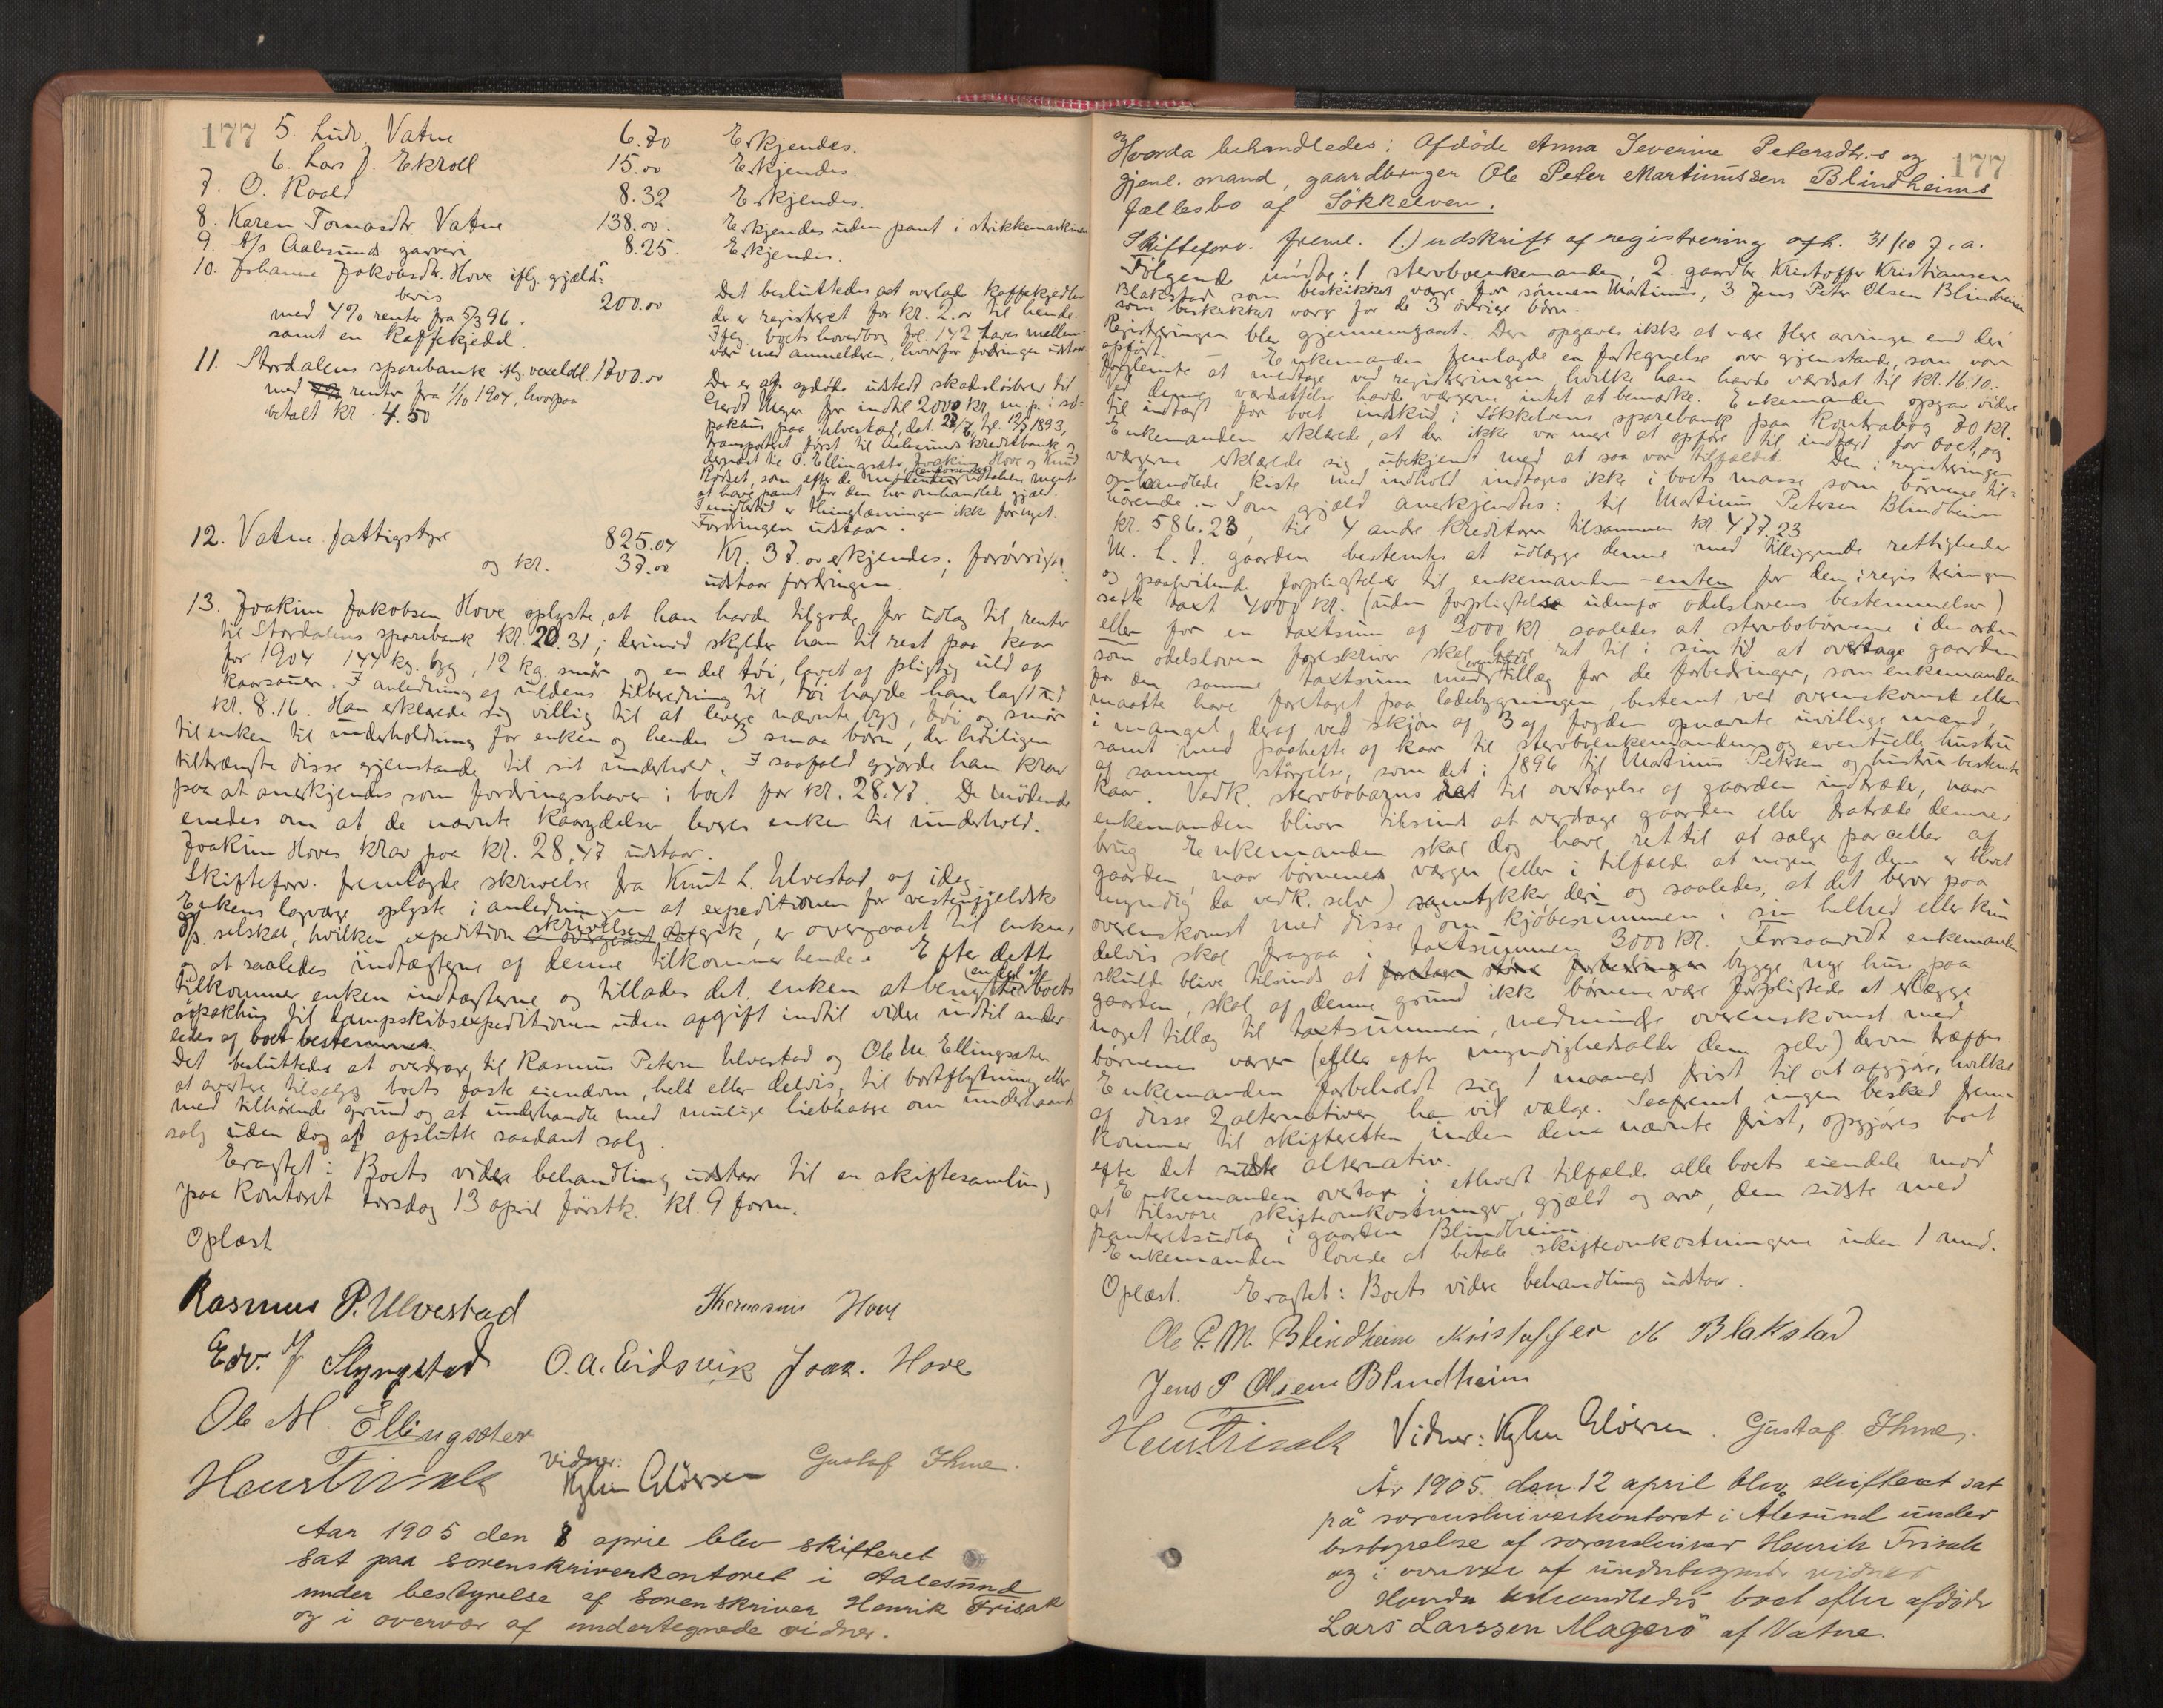 177
5. Ludv. Vatne 6.70 Erkjendes.
6. Lars J. Ekroll 15.00 Erkjendes.
7. O. Roald 8.32 Erkjendes.
8. Karen Tomasdtr. Vatne 138.00. Erkjendes uden pant i strikkemaskinen
9. A/s Aalesunds garveri 8.25. Erkjendes.
10. Johanne Jakobsdtr. Hove iflg. gjælds-
bevis 200.00
med 4% renter fra 5/3 96.
samt en Kaffekjedel.
Det besluttedes at overlade kaffekjedlen
der er registreret for kr. 2.00 til hende.
Iflg. boets hovedbog fol. 142 haves mellem-
vær med anmelderen, hvorfor fordringen udstaar
11. Stordalens sparebank iflg. vexelobl. 1700.00
med renter fra 1/10 1904, hvorpaa
betalt kr. 4.50
Der er af afdøde udstedt skadesløsbrev til
Gerdt Meyer for indtil 2000 kr. m. p. i sø-
pakhus paa Ulvestad, dat. tgl. 1893,
transporteret først til Aalesunds kreditbank og
dernæst til O. Ellingsæter, Joakim Hove og Knud
Rødset, som efter de udtalelser mente
at have pant for den her omhandlede gjæld.
Imidlertid er thinglæsningen ikke fornyet.
Fordringen udstaar.
12. Vatne fattigstyre 825.04
og kr. 37.00
Kr. 37.00 erkjendes; forøvrigt
udstaar fordringen.
13. Joakim Jakobsen Hove oplyste, at han havde tilgode for udlæg til renter
til Stordalens sparebank kr. 20.31; derimod skylder han til rest paa kaar
for 1904 144 kg. byg, 12 kg. smør og en del tøi, lavet af pligtig uld af
kaarsauer. I anledning af uldens tilberedning til tøi havde han lagt ud
kr. 8.16. Han erklærede sig villig til at levere nævnte byg, tøi og smør
til enken til underholdning for enken og hendes 3 smaa børn, der høiligen
tiltrængte disse gjenstande til sit underhold. I saafald gjorde han krav
paa at anerkjendes som fordringshaver i boet for kr. 28.47. De mødende
enedes om at de nævnte kaarydelser leveres enken til underhold.
Joakim Hoves krav paa kr. 28,47 udstaar.
Skifteforv. fremlagde skrivelse fra Knut L. Ulvestad af idag.
Enkens lagværge oplyste i anledningen at expeditionen for vestenfjeldske
d/s. selskab, hvilken expedition skrivelsen afgik, er overgaaet til enken,
og at saaledes indtægterne af denne tilkommer hende. Efter dette
tilkommer enken indtægterne og tillades det enken at benytte en del af boets
søpakhus til dampskibsexpeditionen uden afgift indtil videre indtil ander-
ledes af boet bestemmes.
Det besluttedes at overdrage til Rasmus Petersen Ulvestad og Ole M. Ellingsæter
at avertere tilsalgs boets faste eiendom, helt eller delvis, til bortflytning eller
med tilhørende grund og at underhandle med mulige liebhabere om underhaands
salg uden dog at afslutte saadant salg.
Eragtet: Boets videre behandling udstaar til en skiftesamling
paa kontoret torsdag 13 april førstk. kl. 9 form.
Oplæst
Rasmus P. Ulvestad Hove
Edv. J Slyngstad O. A. Eidsvik Joak. Hove
Ole M. Ellingsæter
Henr Frisak vidner: Gustaf Ihme.
Aar 1905 den 8 april blev skifteret
sat paa sorenskriverkontoret i Aalesund
under bestyrelse af sorenskriver Henrik Frisak
og i overvær af undertegnede vidner.
177
Hvorda behandledes: Afdøde Anna Severine Petersdtr.-s og
gjenl. mand, gaardbruger Ole Peter Martinussen Blindheims
fællesbo af Søkkelven.
Skifteforv. freml. 1.) udskrift af registrering afh. 31/10 f. a.
Følgende mødte: 1. stervboenkemanden, 2. gaardbr. Kristoffer Kristiansen
Blakstad som beskikket værge for sønnen Martinus, 3 Jens Peter Olsen Blindheim
som beskikket værge for de 3 øvrige børn.
Registreringen blev gjennemgaaet. Der opgaves ikke at være flere arvinger end deri
opført. Enkemanden fremlagde en fortegnelse over gjenstande, som var
forglemte at medtage ved registreringen hvilke han havde værdsat til kr. 16.10.
Ved denne værdsættelse havde værgerne intet at bemærke. Enkemanden opgav videre
til indtægt for boet indskud i Søkkelvens sparebank paa Kontrabog 70 kr.
Enkemanden erklærede, at der ikke var mere at opføre til indtægt for boet, og
værgerne erklærede sig ubekjendt med at saa var tilfældet. Den i registreringen
omhandlede kiste med indhold indtages ikke i boets masse som børnene til-
hørende. Som gjæld anerkjendtes: til Martinus Petersen Blindheim
kr. 586.23, til 4 andre kreditorer tilsammen kr 477.23
M. h. t. gaarden bestemtes at udlægge denne med tilliggende rettigheder
og paahvilende forpligtelser til enkemanden - enten for den i registreringen
satte taxt 4000 kr. (uden forpligtelse udenfor odelslovens bestemmelser)
eller for en taxtsum af 3000 kr saaledes at stervbobørnene i den orden
som odelsloven foreskriver skal have ret til i sin tid at overtage gaarden
for den samme taxtsum med eventuelt tillæg for de forbedringer, som enkemanden
maatte have foretaget paa ladebygningen, bestemt ved overenskomst eller
i mangel deraf ved skjøn af 3 af fogden opnævnte uvillige mænd,
samt med paahefte af kaar til stervboenkemanden og eventuelle hustru
af samme størrelse, som det i 1896 til Martinus Petersen og hustru bestemte
kaar. Vedk. stervbobarns ret til overtagelse af gaarden indtræder, naar
enkemanden bliver tilsinds at overdrage gaarden eller fratræde dennes
brug. Enkemanden skal dog have ret til at sælge parceller af
gaarden, naar børnenes værger (eller i tilfælde at nogen af dem er blevet
myndig, da vedk. selv) samtykker deri og saaledes, at det beror paa
overenskomst med disse om kjøbesummen i sin helhed eller kun
delvis skal fragaa i taxtsummen 3000 kr. Forsaavidt enkemanden
skulde blive tilsinds at foretage større forbedringer bygge nye huse paa
gaarden, skal af denne grund ikke børnene være forpligtede at erlægge
noget tillæg til taxtsummen, medmindre overenskomst med
børnenes værger (eller efter myndighedsalder dem selv) derom træffes.
Enkemanden forbeholdt sig 1 maaneds frist til at afgjøre, hvilket
af disse 2 alternativer han vil vælge. Saafremt ingen besked frem-
kommer til skifteretten inden den nævnte frist, opgjøres boet
efter det sidste alternativ.
Enkemanden overtar i ethvert tilfælde alle boets eiendele mod
at tilsvare skifteomkostninger, gjæld og arv, den sidste med
panteretsudlæg i gaarden Blindheim
Enkemanden lovede at betale skifteomkostningerne inden 1 mnd.
Oplæst. Eragtet: Boets videre behandling udstaar.
Ole P. M. Blindheim Kristoffer K Blakstad
Jens P Olsen Blindheim
Henr Frisak Vidner: Gustaf Ihme.
År 1905 den 12 april blev skifteret sat
på sorenskriverkontoret i Ålesund under
bestyrelse af sorenskriver Henrik Frisak
og i overvær af undertegnede vidner
Hvorda behandledes boet efter afdøde
Lars Larssen Magerö af Vatne.